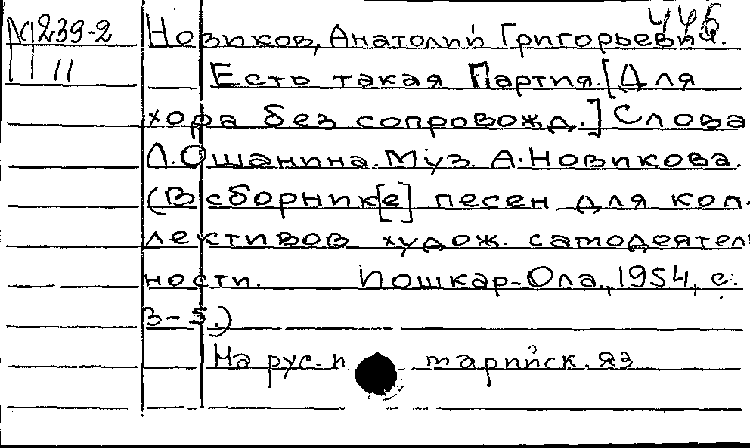 446
N239-2 Новиков, Анатолий Григорьевич.
11 Есть такая Партия. [Для
хора без сопровожд.] Слова
Л. Ошанина. Муз. А. Новикова.
(В сборник[е] песен для кол-
лективов худож. самодеятель
ности. Йошкар-Ола, 1954, с.
3-5.)
На рус. и марийск. яз